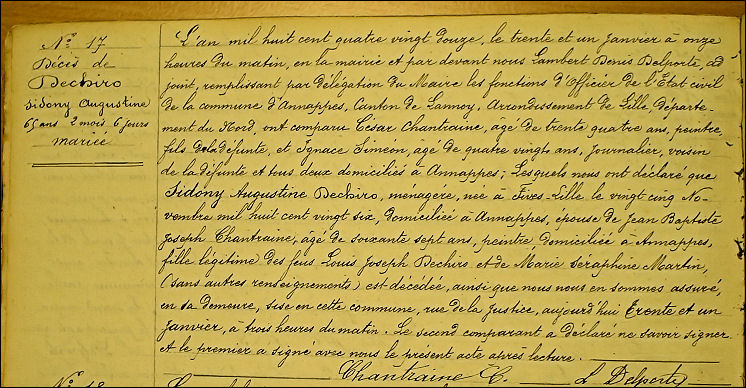 Nº 17
Décès de
Dechiro
Sidony Augustine
65 ans 2 mois, 6 jours
mariée
L'an mil huit cent quatre vingt douze, le trente et un janvier à onze
heures du matin, en la mairie et par devant nous Lambert Denis Delporte, ad
joint, remplissant par délégation du Maire les fonctions d'Officier de l'Etat civil
de la commune d'Annappes, Canton de Lannoy, Arrondissement de Lille, départe-
ment du Nord, ont comparu César Chantraine, âgé de trente quatre ans, peintre,
fils de la défunte, et Ignace Simeon, agé de quatre vingts ans, journalier, voisin
de la défunte et tous deux domiciliés à Annappes; Lesquels nous ont déclaré que
Sidony Augustine Dechiro, ménagère, née à Fives-Lille le vingt cinq No-
vembre mil huit cent vingt six, domiciliée à Annappes, épouse de Jean Baptiste
Joseph Chantraine, âgé de soixante sept ans, peintre domicilié à Annappes,
fille légitime des feus Louis Joseph Dechiro et de Marie Séraphine Martin,
(sans autres renseignements) est décédée, ainsi que nous nous en sommes assuré,
en sa demeure, sise en cette commune, rue de la Justice, aujourd'hui trente et un
janvier, à trois heures du matin. Le second comparant a déclaré ne savoir signer
et le premier a signé avec nous le présent acte après lecture.
Chantraine C. L Delporte
Nº 18